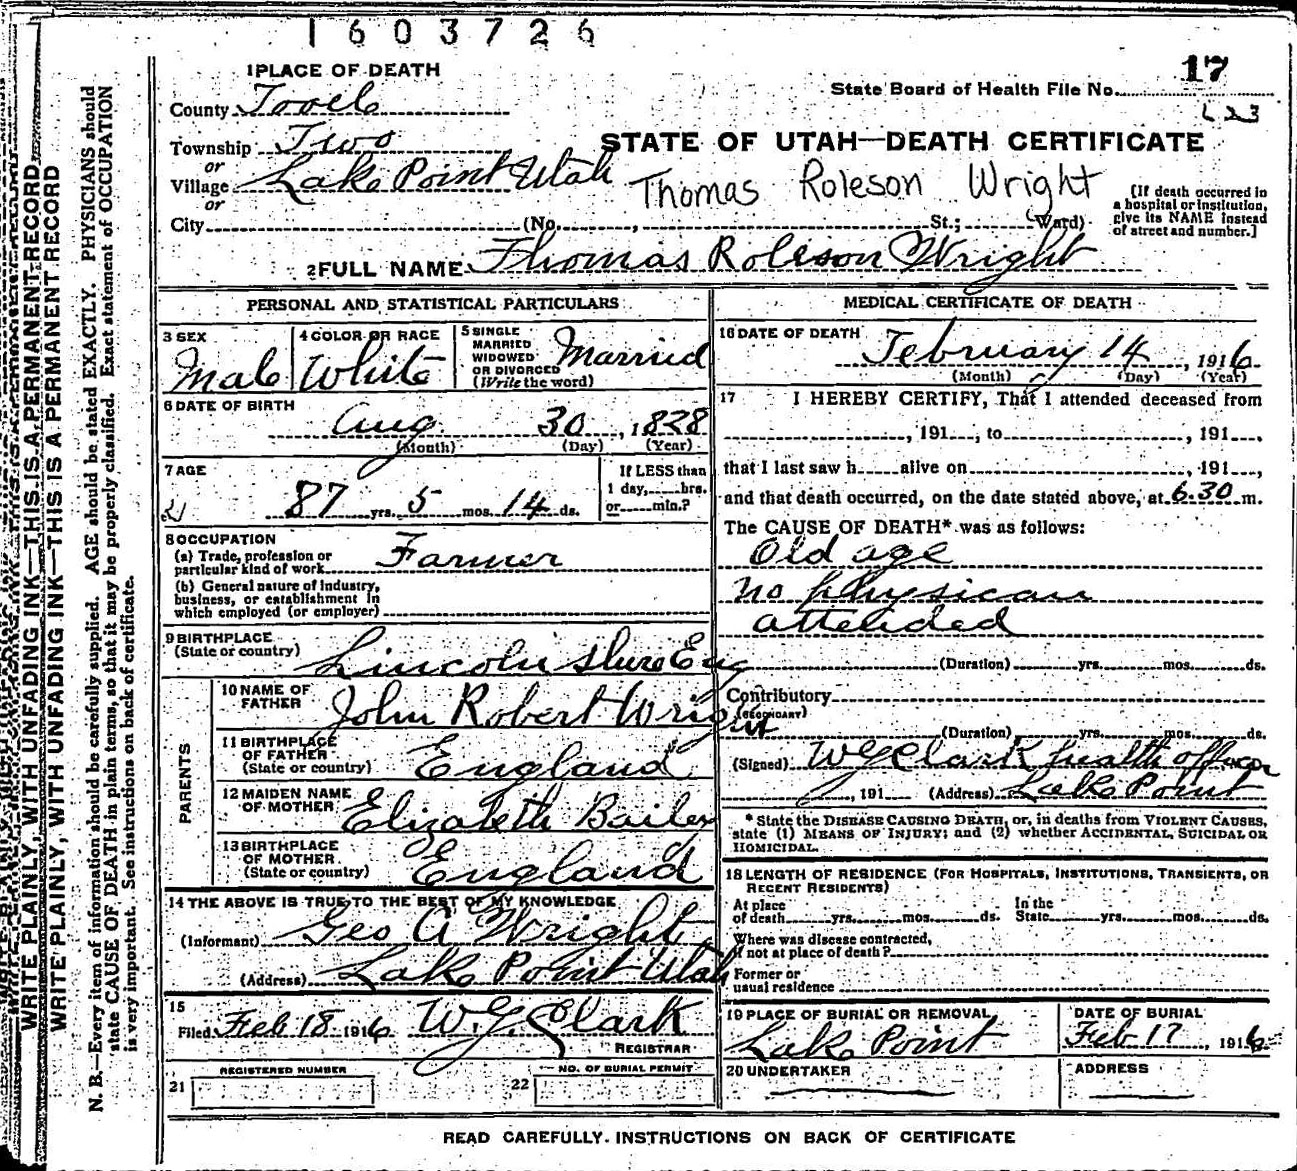 1603726
17
State Board of Health File No.
223
1 PLACE OF DEATH
County Tooele
Township Two
or
Village Lake Point Utah
or
City (No. , St.; Ward)
STATE OF UTAH—DEATH CERTIFICATE
Thomas Roleson Wright
[If death occurred in
a hospital or institution,
give its NAME instead
of street and number.]
2 FULL NAME Thomas Roleson Wright
PERSONAL AND STATISTICAL PARTICULARS
3 SEX
Male
4 COLOR OR RACE
White
5 SINGLE
MARRIED
WIDOWED
OR DIVORCED
(Write the word)
Married
6 DATE OF BIRTH
Aug 30, 1828
(Month) (Day) (Year)
7 AGE
87 yrs. 5 mos. 14 ds.
If LESS than
1 day, hrs.
or min.?
8 OCCUPATION
(a) Trade, profession or
particular kind of work Farmer
(b) General nature of industry,
business, or establishment in
which employed (or employer)
9 BIRTHPLACE
(State or country)
Lincoln shire Eng
PARENTS
10 NAME OF
FATHER
John Robert Wright
11 BIRTHPLACE
OF FATHER
(State or country)
England
12 MAIDEN NAME
OF MOTHER
Elizabeth Bailey
13 BIRTHPLACE
OF MOTHER
(State or country)
England
14 THE ABOVE IS TRUE TO THE BEST OF MY KNOWLEDGE
(Informant) Geo A Wright
(Address) Lake Point Utah
15
Filed Feb 18 1916 W.G. Clark
REGISTRAR
21
REGISTERED NUMBER
22
NO. OF BURIAL PERMIT
MEDICAL CERTIFICATE OF DEATH
16 DATE OF DEATH
February 14, 1916
(Month) (Day) (Year)
17 I HEREBY CERTIFY, That I attended deceased from
, 191 , to , 191 ,
that I last saw h alive on , 191 ,
and that death occurred, on the date stated above, at 6.30 m.
The CAUSE OF DEATH* was as follows:
Old age
no physician
attended
(Duration) yrs. mos. ds.
Contributory
(SECONDARY)
(Duration) yrs. mos. ds.
(Signed) W G Clark health officer
, 191 (Address) Lake Point
* State the DISEASE CAUSING DEATH, or, in deaths from VIOLENT CAUSES,
state (1) MEANS OF INJURY; and (2) whether ACCIDENTAL, SUICIDAL OR
HOMICIDAL.
18 LENGTH OF RESIDENCE (FOR HOSPITALS, INSTITUTIONS, TRANSIENTS, OR
RECENT RESIDENTS)
At place
of death yrs. mos. ds.
In the
State yrs. mos. ds.
Where was disease contracted,
if not at place of death?
Former or
usual residence
19 PLACE OF BURIAL OR REMOVAL
Lake Point
DATE OF BURIAL
Feb 17, 1916
20 UNDERTAKER
ADDRESS
READ CAREFULLY. INSTRUCTIONS ON BACK OF CERTIFICATE
WRITE PLAINLY, WITH UNFADING INK—THIS IS A PERMANENT RECORD
WRITE PLAINLY, WITH UNFADING INK—THIS IS A PERMANENT RECORD
N. B.—Every item of information should be carefully supplied. AGE should be stated EXACTLY. PHYSICIANS should
state CAUSE OF DEATH in plain terms, so that it may be properly classified. Exact statement of OCCUPATION
is very important. See instructions on back of certificate.